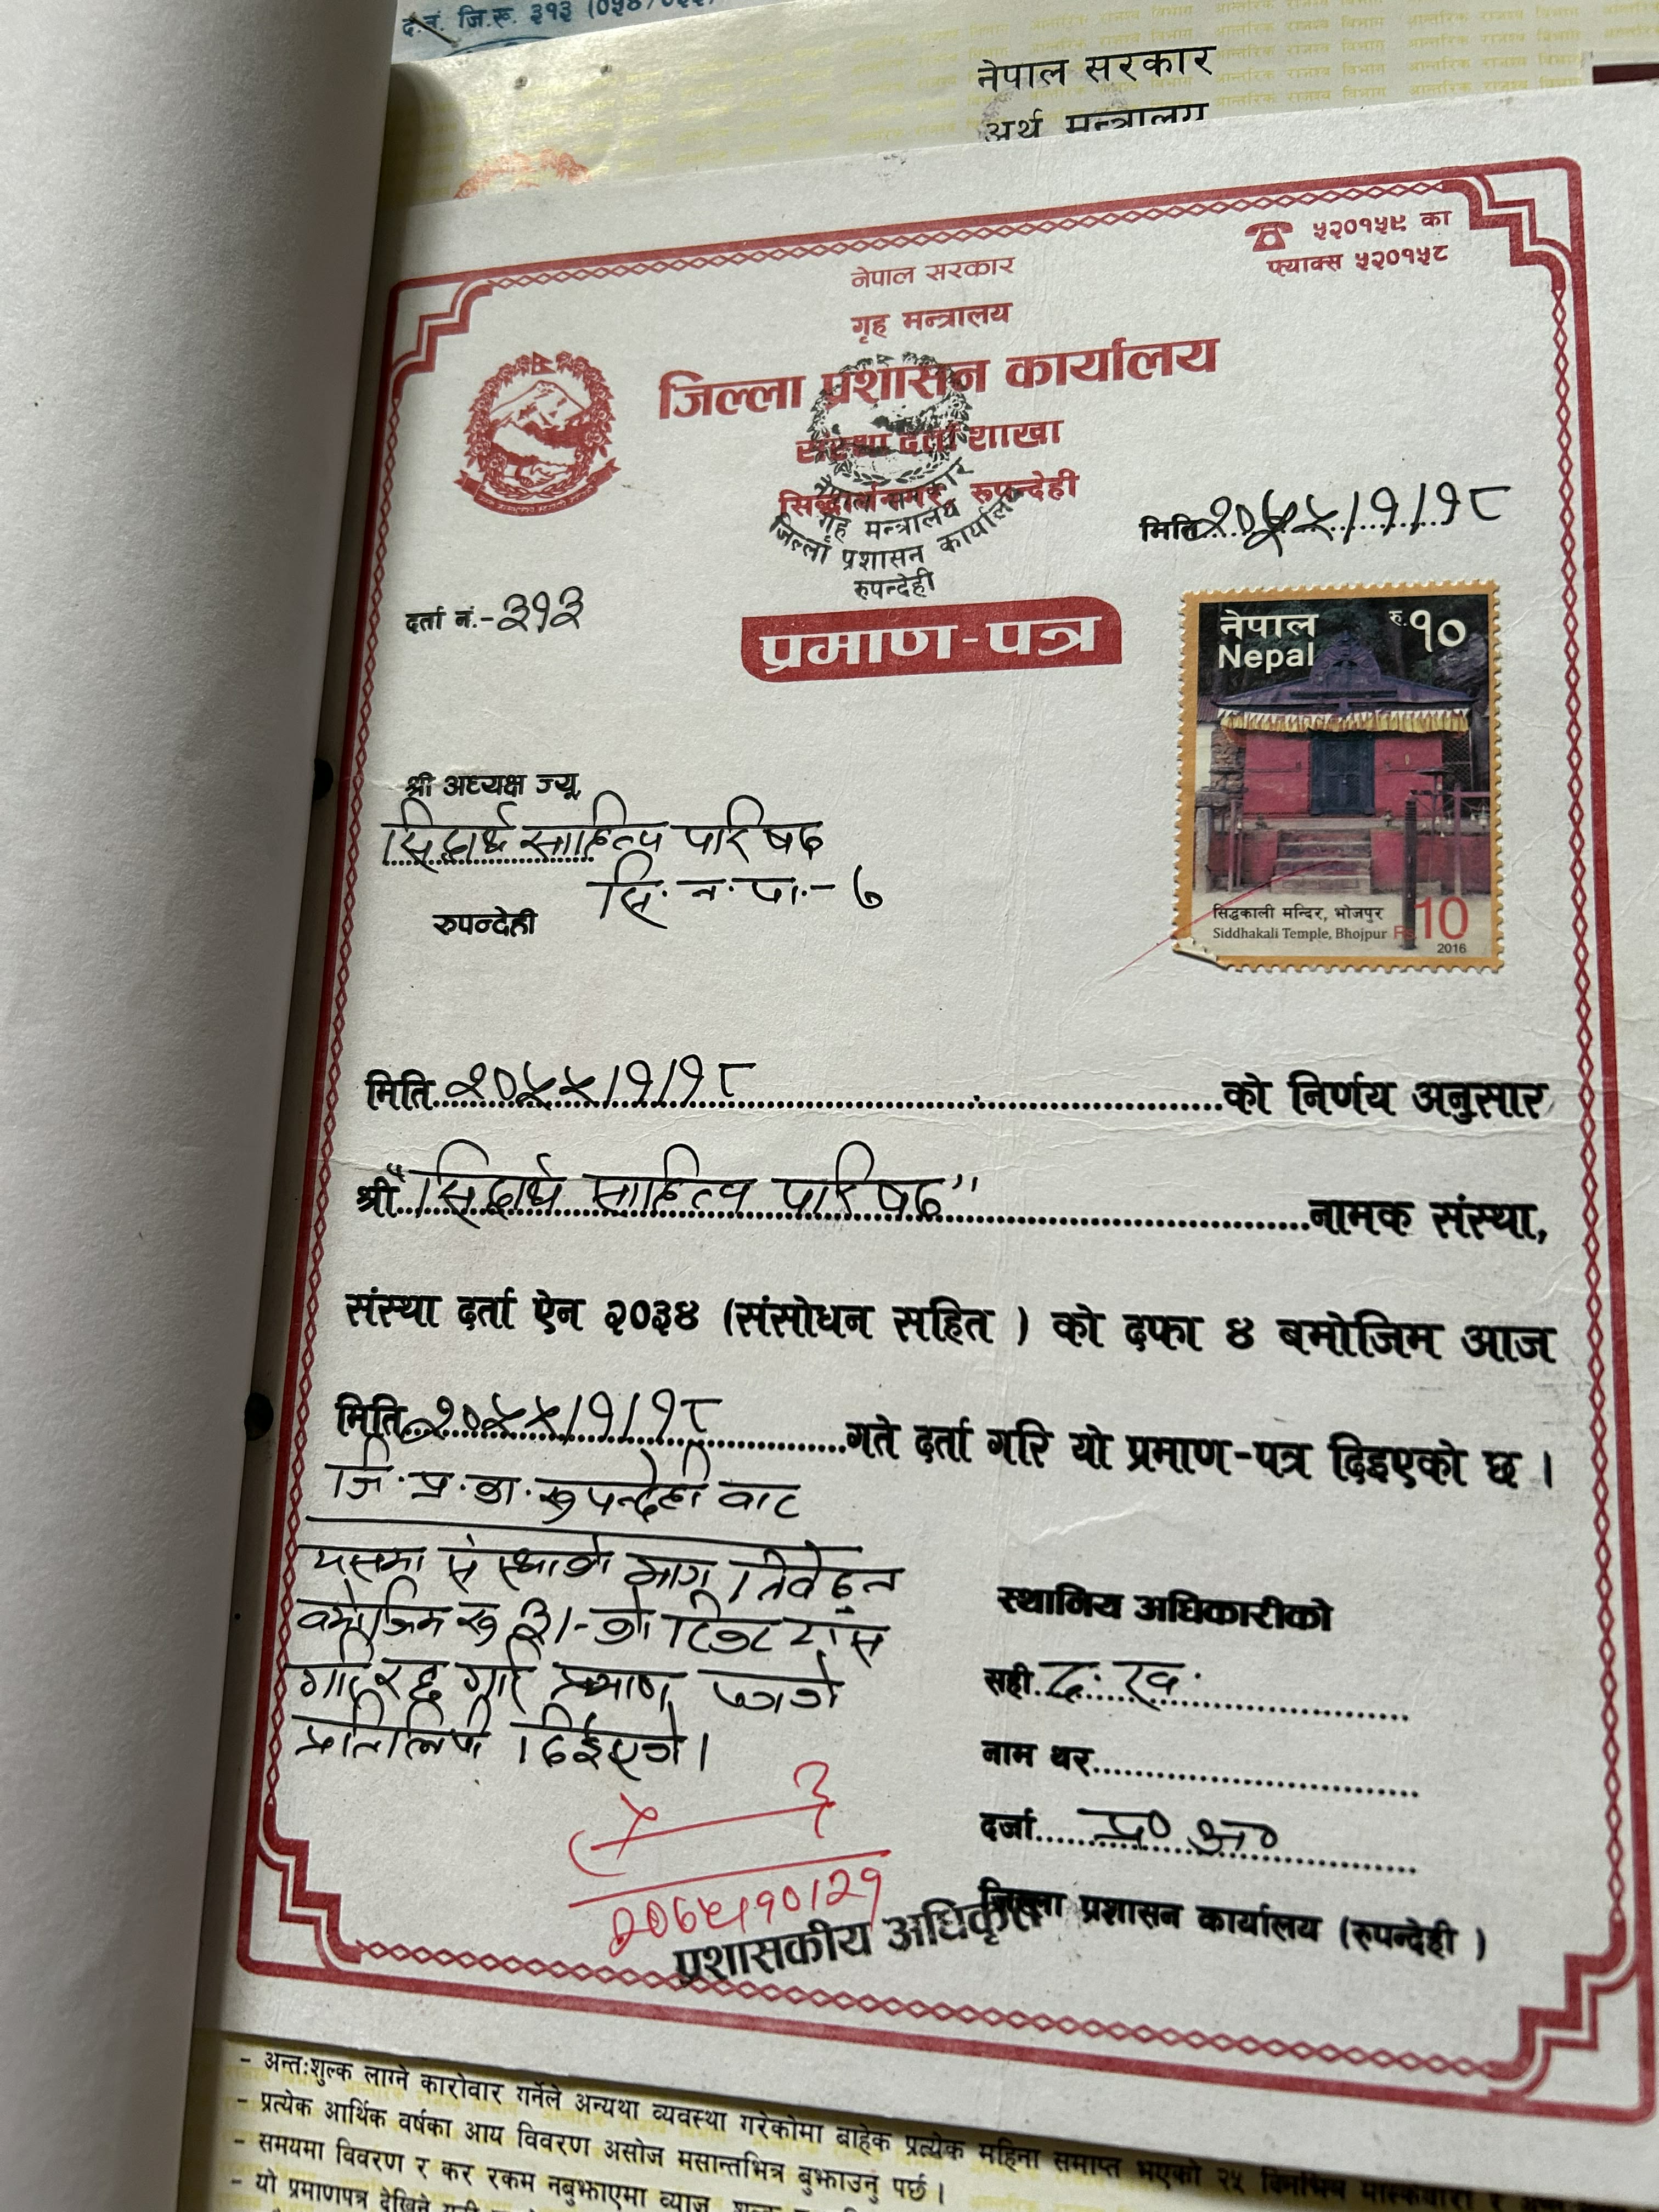 द.नं. जि.रू. ३१३
नेपाल सरकार
अर्थ मन्त्रालय
☎ ५२०१५९ का
फ्याक्स ५२०१५८
नेपाल सरकार
गृह मन्त्रालय
जिल्ला प्रशासन कार्यालय
संस्था दर्ता शाखा
सिद्धार्थनगर, रूपन्देही
नेपाल सरकार
गृह मन्त्रालय
जिल्ला प्रशासन कार्यालय
रुपन्देही
मिति २०५५/१/१८
दर्ता नं.- ३१३
प्रमाण-पत्र
नेपाल रु. १०
Nepal
सिद्धकाली मन्दिर, भोजपुर
Siddhakali Temple, Bhojpur Rs. 10
2016
श्री अध्यक्ष ज्यू,
सिद्धार्थ साहित्य परिषद
सि. न. पा. - ७
रुपन्देही
मिति २०५५/१/१८ को निर्णय अनुसार
श्री "सिद्धार्थ साहित्य परिषद" नामक संस्था,
संस्था दर्ता ऐन २०३४ (संसोधन सहित ) को दफा ४ बमोजिम आज
मिति २०५५/१/१८ गते दर्ता गरि यो प्रमाण-पत्र दिइएको छ ।
जि. प्र. का. रुपन्देही बाट
यसमा संस्थाको माग निवेदन
बमोजिम रु ३/- को टिकट टाँस
गरि रद्द गरि प्रमाण पत्रको
प्रतिलिपी दिईएको ।
स्थानिय अधिकारीको
सही. द. ख.
नाम थर
दर्जा प्र० अ०
जिल्ला प्रशासन कार्यालय (रुपन्देही )
प्रशासकीय अधिकृत
- अन्त:शुल्क लाग्ने कारोवार गर्नेले अन्यथा व्यवस्था गरेकोमा बाहेक प्रत्येक महिना समाप्त भएको २५ दिनभित्र
- प्रत्येक आर्थिक वर्षका आय विवरण असोज मसान्तभित्र बुझाउनु पर्छ ।
- समयमा विवरण र कर रकम नबुझाएमा व्याज, शुल्क
- यो प्रमाणपत्र देखिने गरी